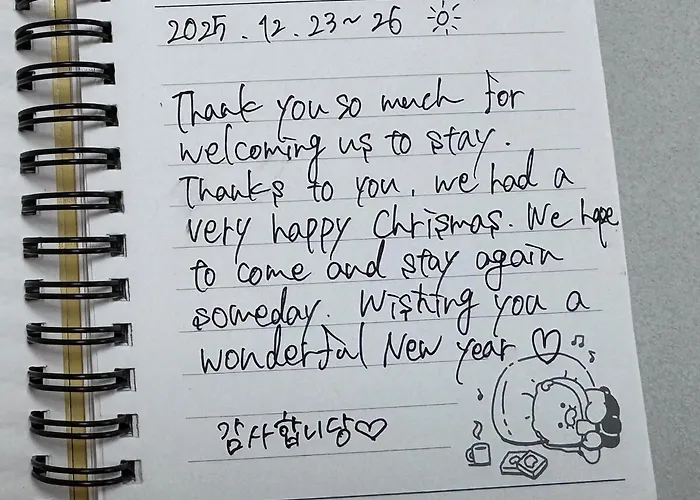 2025.12.23~26
Thank you so much for
welcoming us to stay.
Thanks to you, we had a
very happy Chrismas. We hope
to come and stay again
someday. Wishing you a
wonderful New year ♡
감사합니당♡